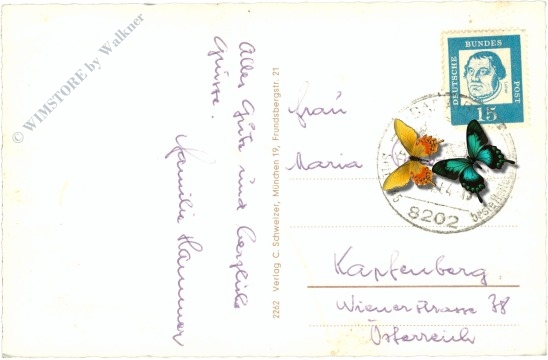 © WIMSTORE by Walkner
Alles Gute und herzliche
Grüsse.
Familie Hammer
2262 Verlag C. Schweizer, München 19, Frundsbergstr. 21
DEUTSCHE BUNDESPOST
15
8202
Frau
Maria
Kapfenberg
Wienerstrasse 38
Österreich